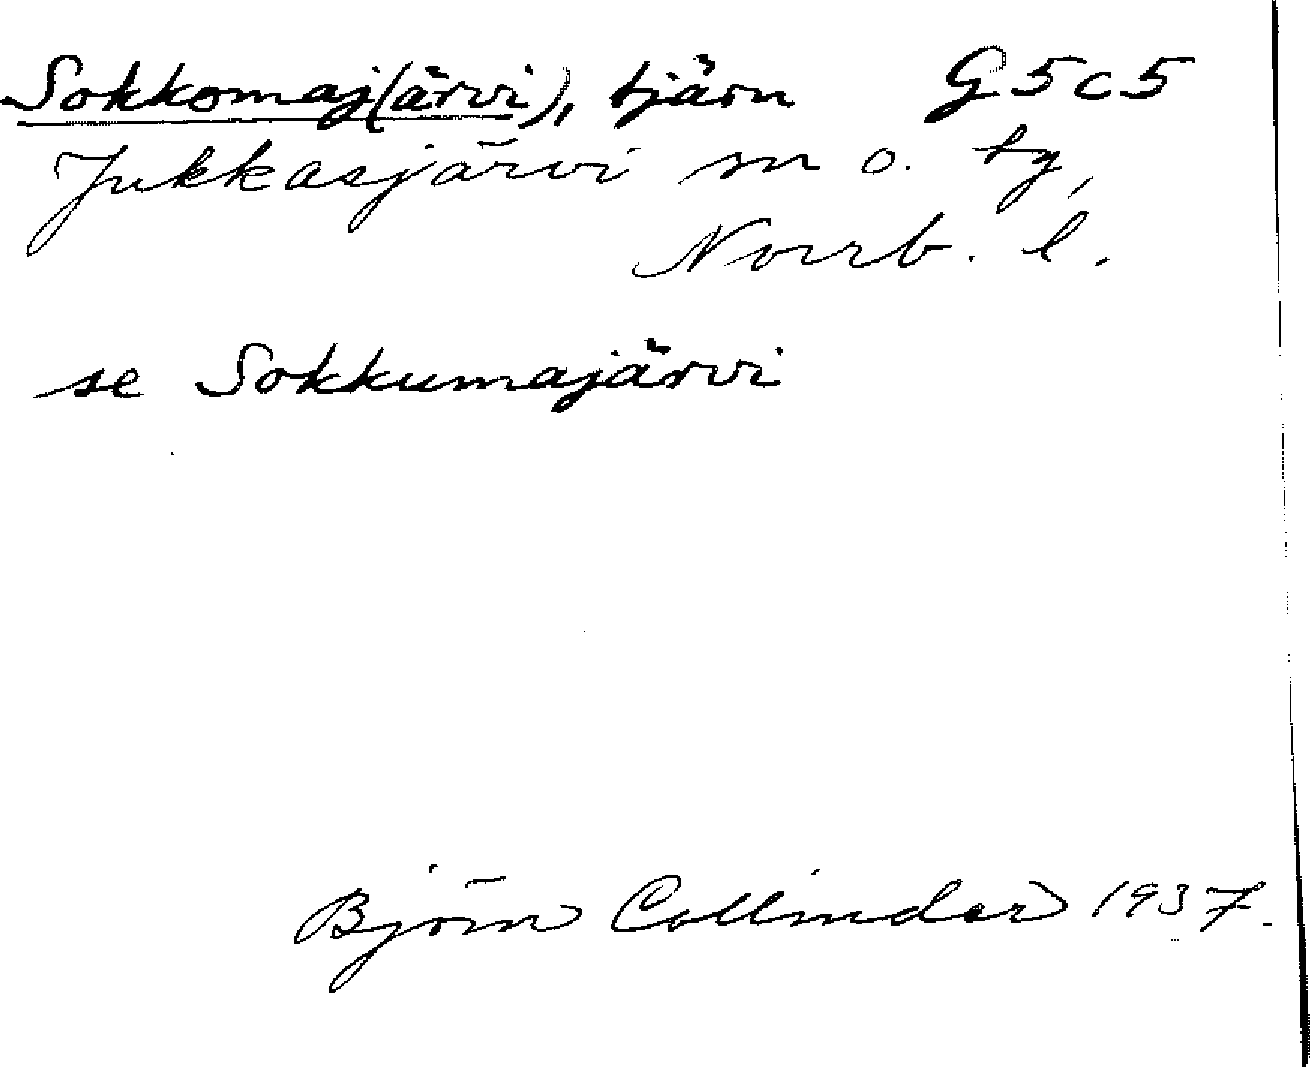 Sokkomaj(ärvi), tjärn G5c5
Jukkasjärvi sn o. tg,
Norrb. l.
se Sokkumajärvi
Björn Collinder 1937.